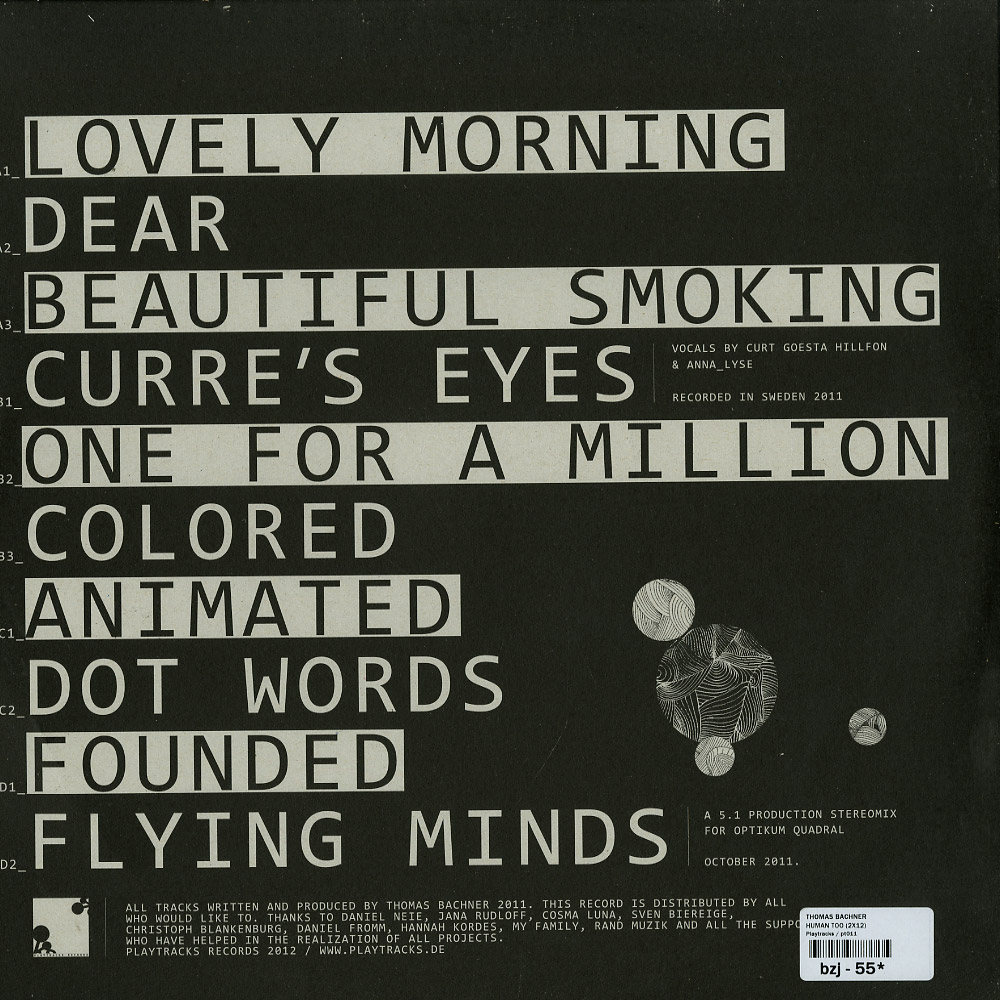 A1_ LOVELY MORNING
A2_ DEAR
A3_ BEAUTIFUL SMOKING
B1_ CURRE'S EYES
VOCALS BY CURT GOESTA HILLFON
& ANNA_LYSE
RECORDED IN SWEDEN 2011
B2_ ONE FOR A MILLION
B3_ COLORED
C1_ ANIMATED
C2_ DOT WORDS
D1_ FOUNDED
D2_ FLYING MINDS
A 5.1 PRODUCTION STEREOMIX
FOR OPTIKUM QUADRAL
OCTOBER 2011.
ALL TRACKS WRITTEN AND PRODUCED BY THOMAS BACHNER 2011. THIS RECORD IS DISTRIBUTED BY ALL
WHO WOULD LIKE TO. THANKS TO DANIEL NEIE, JANA RUDLOFF, COSMA LUNA, SVEN BIEREIGE,
CHRISTOPH BLANKENBURG, DANIEL FROMM, HANNAH KORDES, MY FAMILY, RAND MUZIK AND ALL THE SUPPO
WHO HAVE HELPED IN THE REALIZATION OF ALL PROJECTS.
PLAYTRACKS RECORDS 2012 / WWW.PLAYTRACKS.DE
THOMAS BACHNER
HUMAN TOO (2X12)
Playtracks / pt011
bzj - 55*